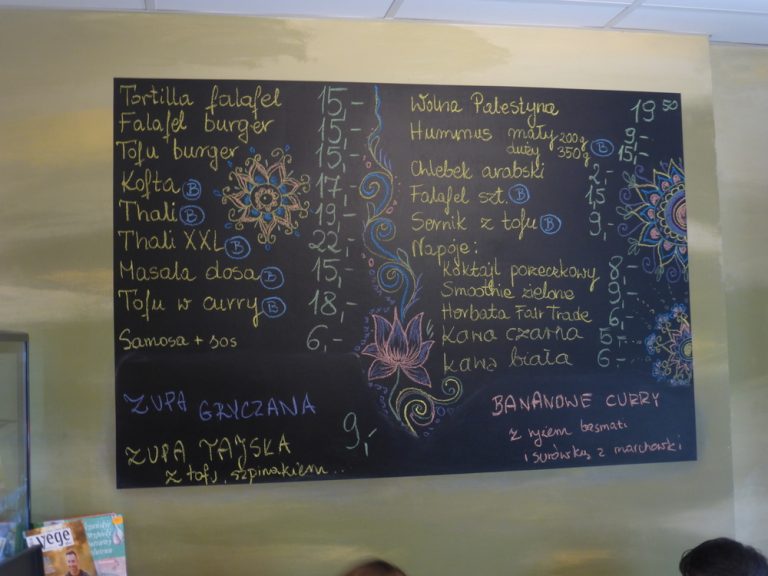 Tortilla falafel 15,-
Falafel burger 15,-
Tofu burger 15,-
Kofta B 17,-
Thali B 19,-
Thali XXL B 22,-
Masala dosa B 15,-
Tofu w curry B 18,-
Samosa + sos 6,-
ZUPA GRYCZANA
ZUPA TAJSKA 9,-
z tofu, szpinakiem...
Wolna Palestyna 19 50
Hummus mały 200g 9,-
duży 350g B 15,-
Chlebek arabski 2,-
Falafel szt. B 1,5
Sernik z tofu B 9,-
Napoje:
Koktajl porzeczkowy 8,-
Smoothie zielone 9,-
Herbata Fair Trade 6,-
Kawa czarna 5,-
Kawa biała 6,-
BANANOWE CURRY
z ryżem basmati
i surówką z marchewki
vege